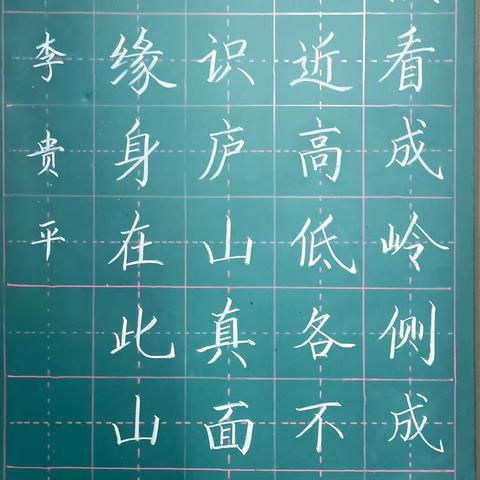 看成岭侧成
近高低各不
识庐山真面
缘身在此山
李贵平